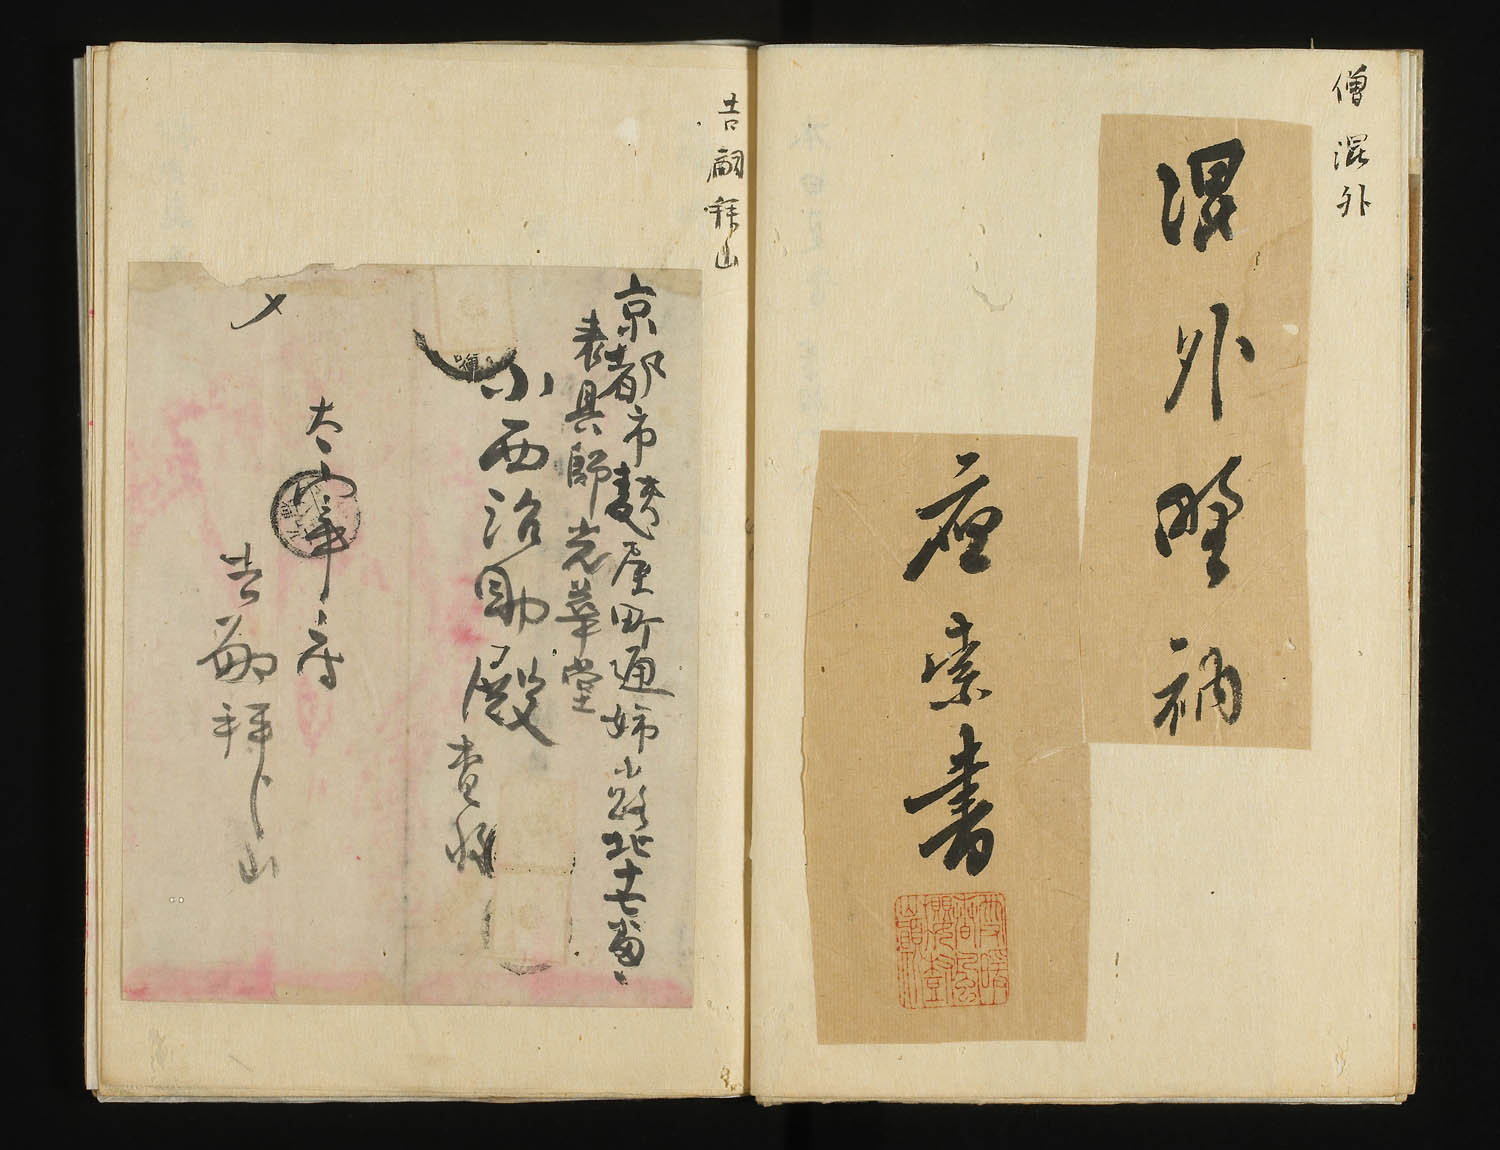 僧混外
混外野衲
應索書
吉嗣拜山
京都市麩屋町通姉小路北十七番
表具師光華堂
小西治助殿
貴酬
〆
太宰府
吉嗣拜山